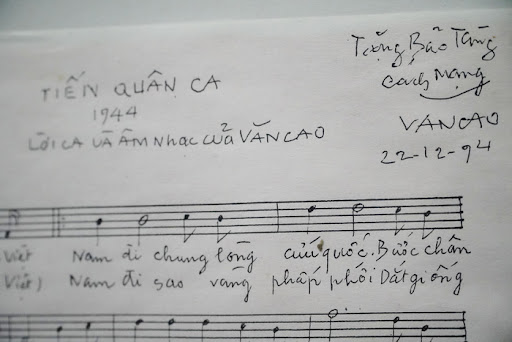 Tặng Bảo Tàng
Cách Mạng
TIẾN QUÂN CA
1944
LỜI CA VÀ ÂM NHẠC CỦA VĂN CAO
VĂN CAO
22-12-94
Việt Nam đi chung lòng cứu quốc. Bước chân
Việt) Nam đi sao vàng phấp phới Dắt giống